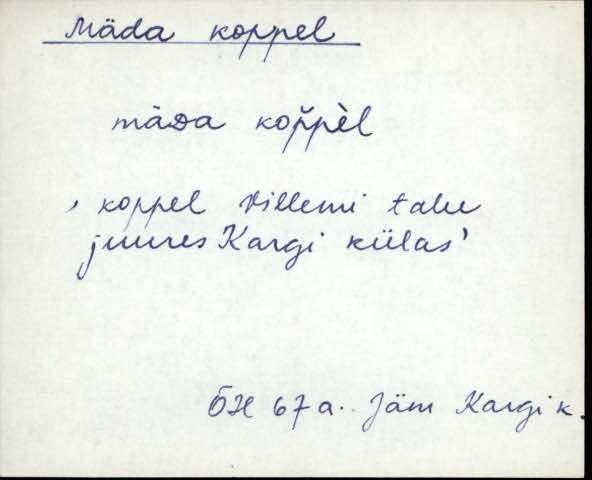 Mäda koppel
mäda kop̆pèl
, koppel Villemi talu
juures Kargi külas'
ÕH 67a. Jäm Kargi k.